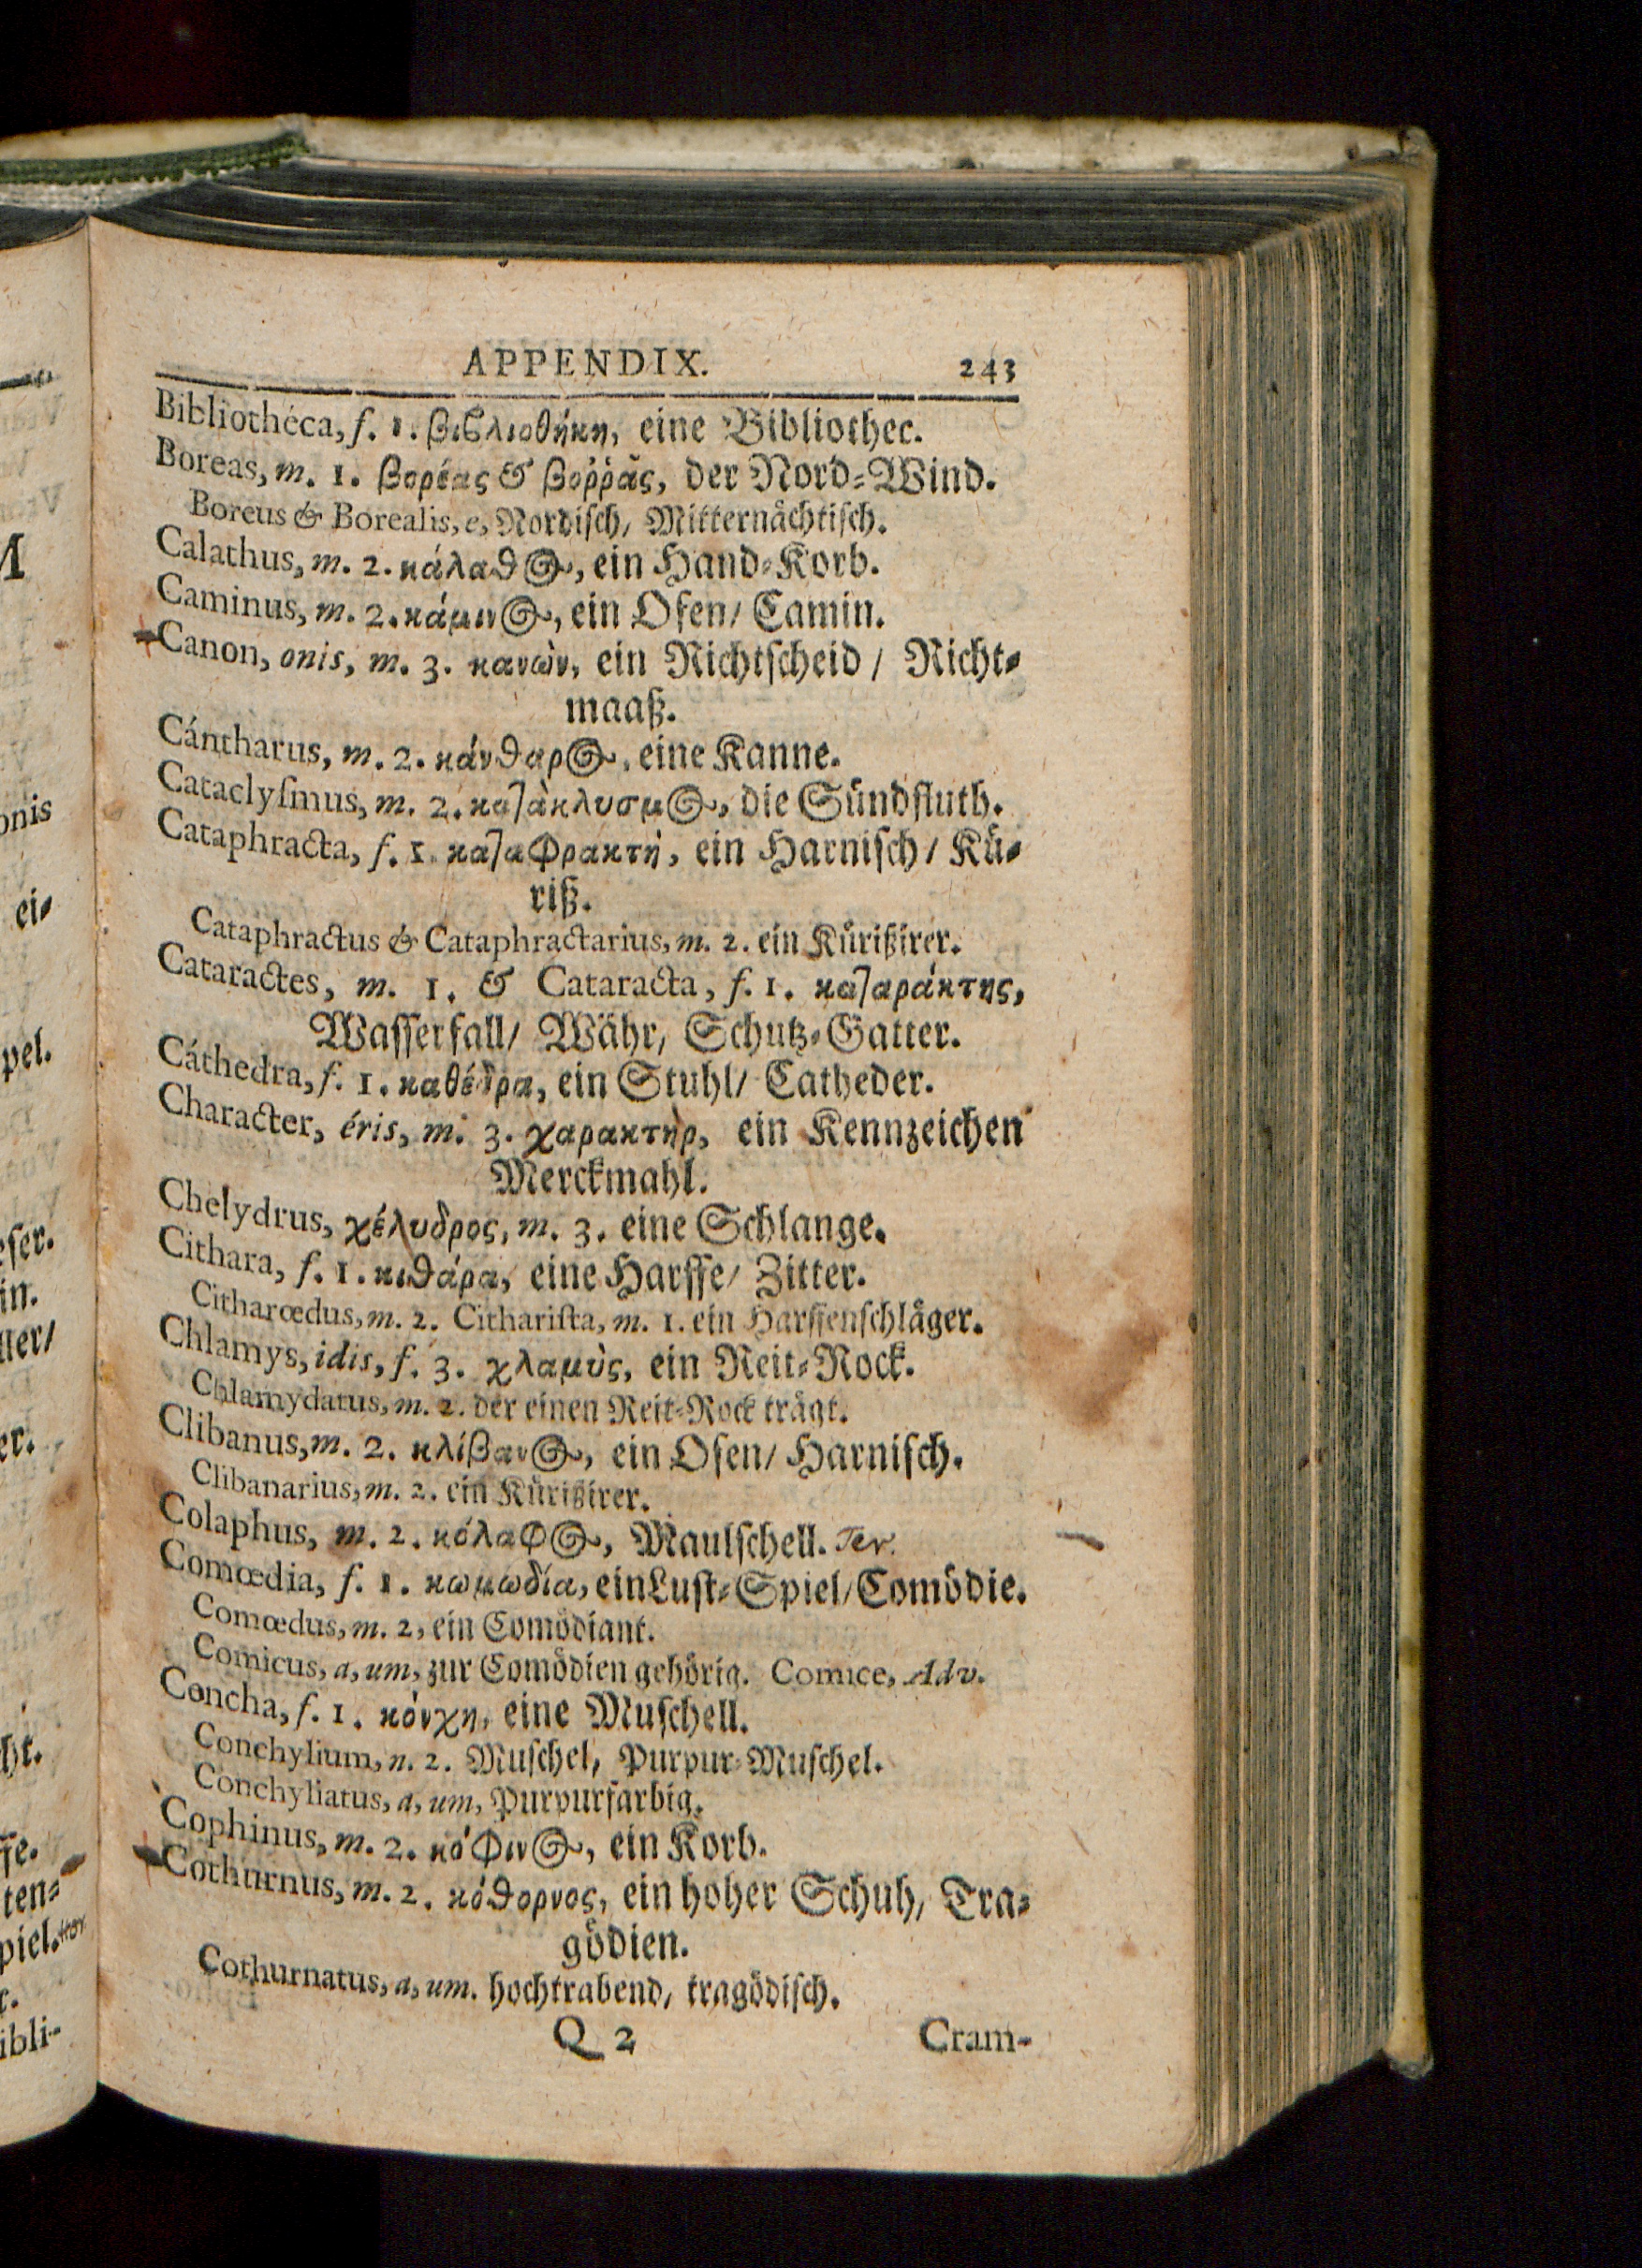 APPENDIX. 243
Bibliothéca, f. 1. βιβλιοθήκη, eine Bibliothec.
Boreas, m. 1. βορέας & βοῤῥᾶς, der Nord-Wind.
Boreus & Borealis, e, Nordiſch, Mitternächtiſch.
Calathus, m. 2. κάλαθος, ein Hand-Korb.
Caminus, m. 2. κάμινος, ein Ofen/ Camin.
Canon, onis, m. 3. κανὼν, ein Richtſcheid / Richt-
maaß.
Cántharus, m. 2. κάνθαρος, eine Kanne.
Cataclyſmus, m. 2. κατακλυσμος, die Sündfluth.
Cataphracta, f. 1. καταφρακτή, ein Harniſch / Kü-
riß.
Cataphractus & Cataphractarius, m. 2. ein Kürißirer.
Cataractes, m. 1. & Cataracta, f. 1. καταράκτης,
Waſſerfall/ Währ, Schutz-Gatter.
Cáthedra, f. 1. καθέδρα, ein Stuhl/ Catheder.
Character, éris, m. 3. χαρακτὴρ, ein Kennzeichen
Merckmahl.
Chelydrus, χέλυδρος, m. 3. eine Schlange.
Cithara, f. 1. κιθάρα, eine Harffe/ Zitter.
Citharœdus, m. 2. Cithariſta, m. 1. ein Harffenſchläger.
Chlamys, idis, f. 3. χλαμὺς, ein Reit-Rock.
Chlamydatus, m. 2. der einen Reit-Rock trägt.
Clibanus, m. 2. κλίβανος, ein Ofen/ Harniſch.
Clibanarius, m. 2. ein Kürißirer.
Colaphus, m. 2. κόλαφος, Maulſchell. Ter.
Comœdia, f. 1. κωμωδία, ein Luſt-Spiel/ Comödie.
Comœdus, m. 2, ein Comödiant.
Comicus, a, um, zur Comödien gehörig. Comice, Adv.
Concha, f. 1. κόνχη, eine Muſchell.
Conchylium, n. 2. Muſchel, Purpur-Muſchel.
Conchyliatus, a, um, Purpurfarbig.
Cophinus, m. 2. κόφινος, ein Korb.
Cothurnus, m. 2. κόθορνος, ein hoher Schuh, Tra-
gödien.
Cothurnatus, a, um. hochtrabend, tragödiſch.
Q 2 Cram-